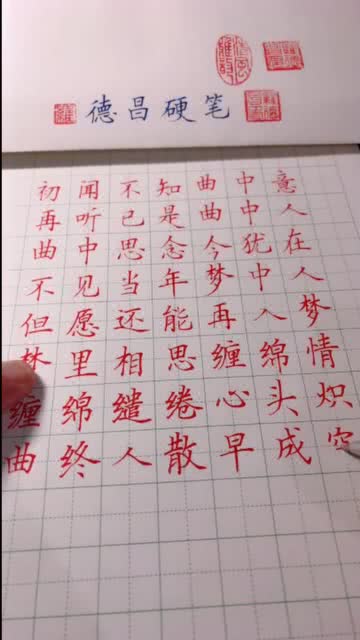 德昌硬笔
初闻不知曲中意
再听已是曲中人
曲中思念今犹在
不见当年梦中人
但愿还能再入梦
梦里相思缠绵情
缠绵缱绻心头炽
曲终人散早成空